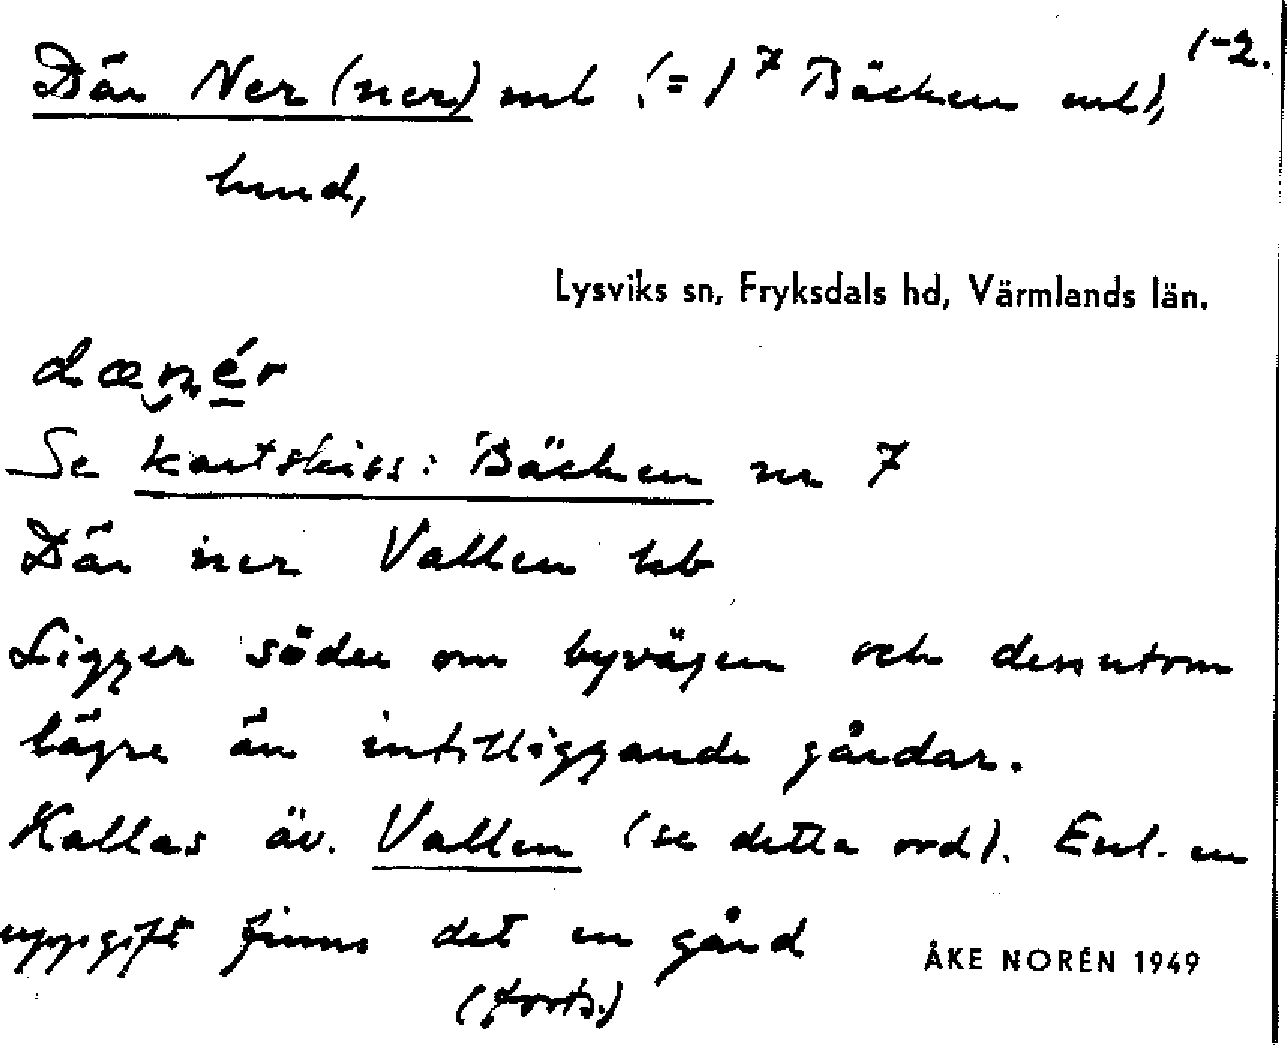 1-2.
Där Ner (ner) ml (= 1⁷ Bäcken ml),
hmd,
Lysviks sn, Fryksdals hd, Värmlands län.
dænér
Se kartskiss: Bäcken nr 7
Där ner Vallen hb
Ligger söder om byvägen och dessutom
lägre än intilliggande gårdar.
Kallas äv. Vallen (se detta ord). Enl. en
uppgift finns det en gård
ÅKE NORÉN 1949
(forts.)